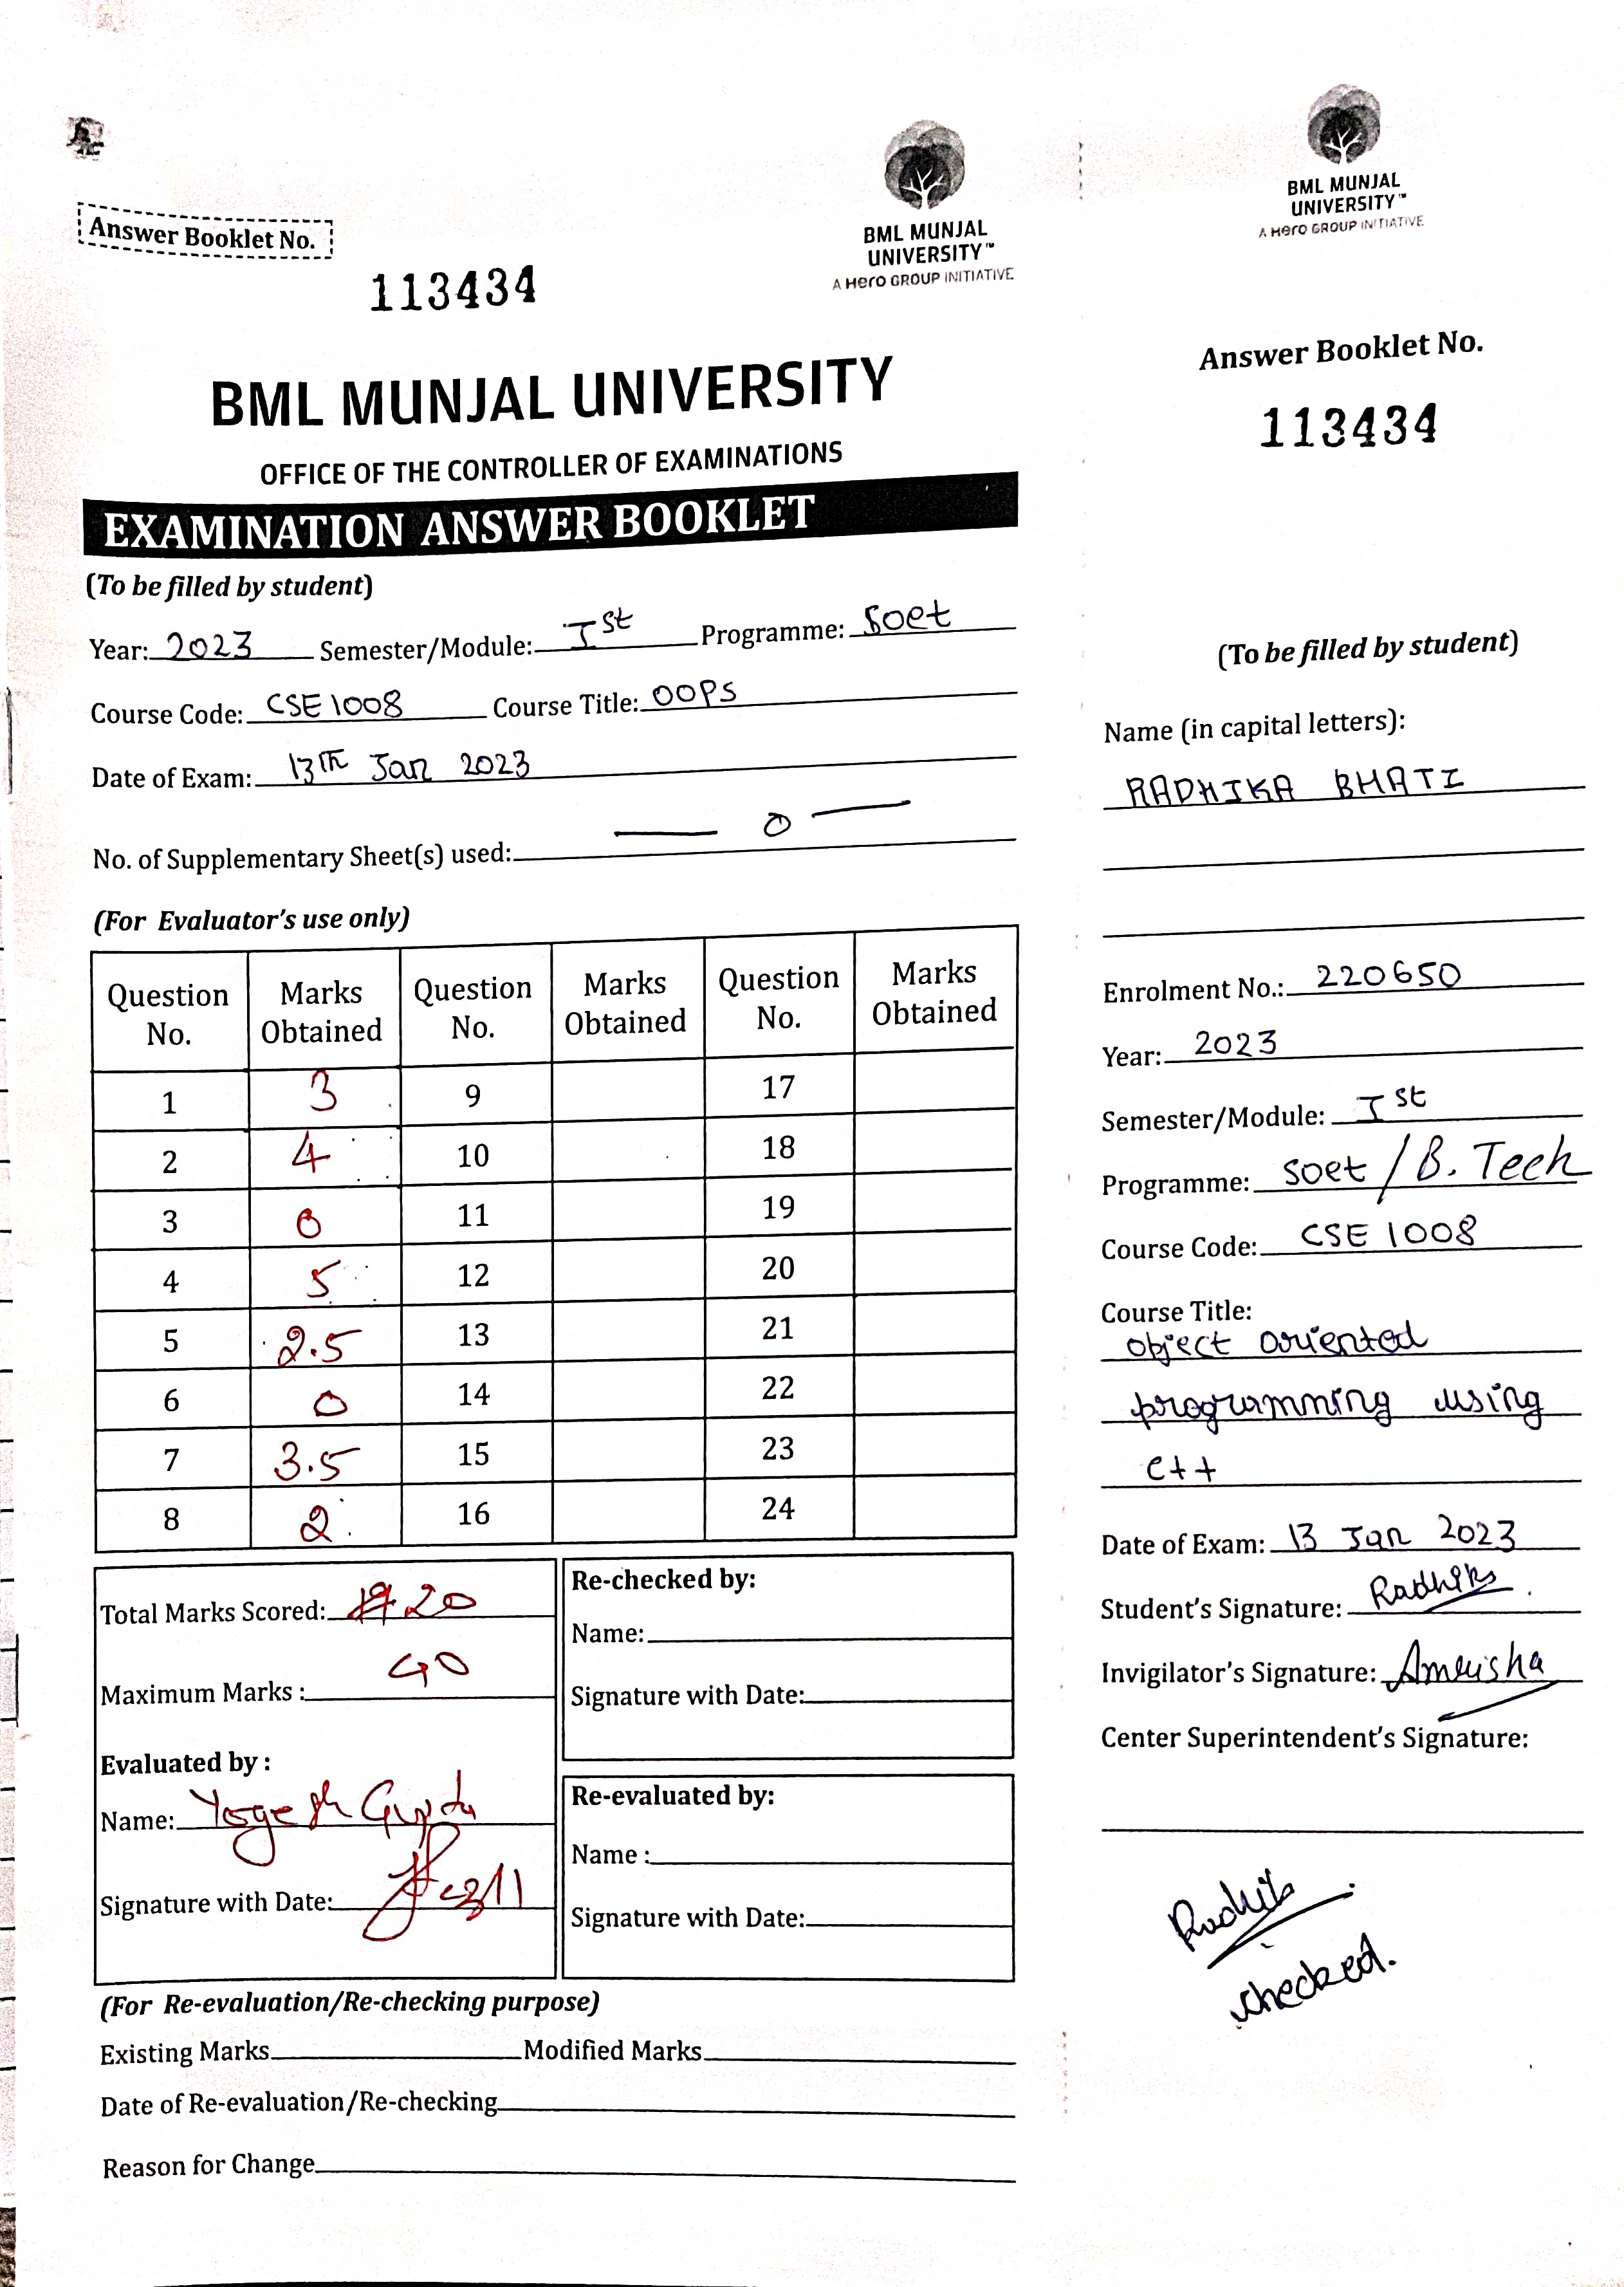 BML MUNJAL
UNIVERSITY™
A Hero GROUP INITIATIVE
Answer Booklet No.
113434
BML MUNJAL UNIVERSITY
OFFICE OF THE CONTROLLER OF EXAMINATIONS
EXAMINATION ANSWER BOOKLET
(To be filled by student)
Year: 2023 Semester/Module: Ist Programme: Soet
Course Code: CSE1008 Course Title: OOPS
Date of Exam: 13th Jan 2023
No. of Supplementary Sheet(s) used: — 0 —
(For Evaluator's use only)
Question No. Marks Obtained Question No. Marks Obtained Question No. Marks Obtained
1 3 9 17
2 4 10 18
3 0 11 19
4 5 12 20
5 2.5 13 21
6 0 14 22
7 3.5 15 23
8 2 16 24
Total Marks Scored: 20
Maximum Marks : 40
Evaluated by :
Name: Yogesh Gupta
Signature with Date:
Re-checked by:
Name:
Signature with Date:
Re-evaluated by:
Name :
Signature with Date:
(For Re-evaluation/Re-checking purpose)
Existing Marks Modified Marks
Date of Re-evaluation/Re-checking
Reason for Change
BML MUNJAL
UNIVERSITY™
A Hero GROUP INITIATIVE
Answer Booklet No.
113434
(To be filled by student)
Name (in capital letters):
RADHIKA BHATI
Enrolment No.: 220650
Year: 2023
Semester/Module: Ist
Programme: Soet / B. Tech
Course Code: CSE 1008
Course Title:
object oriented
programming using
C++
Date of Exam: 13 Jan 2023
Student's Signature: Radhika
Invigilator's Signature: Amrisha
Center Superintendent's Signature:
Radhika
checked.